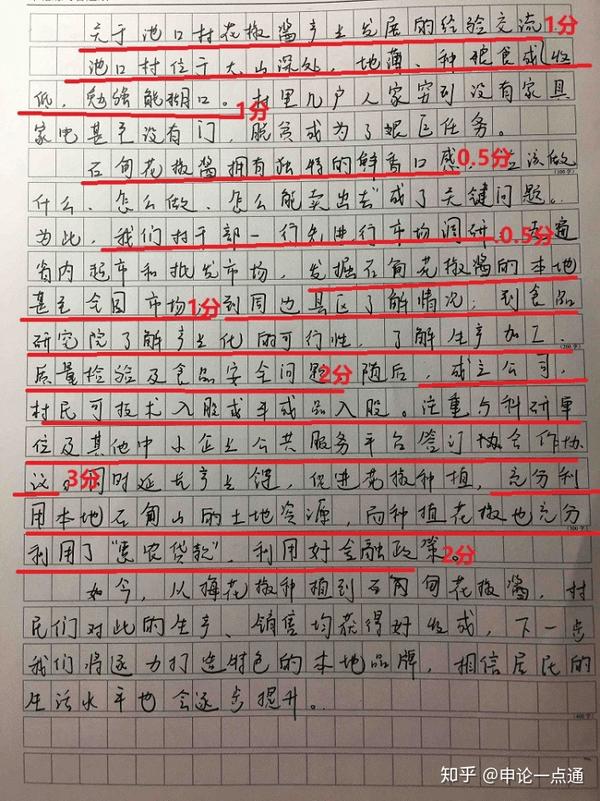 关于池口村花椒酱产业发展的经验交流 1分
池口村位于大山深处，地薄、种粮食成收
低，勉强能糊口。村里几户人家穷到没有家具 1分
家电甚至没有门，脱贫成为了艰巨任务。
石甸花椒酱拥有独特的鲜香口感，应该做 0.5分
什么、怎么做、怎么能卖出去"成了关键问题。 (100字)
为此，我们村干部一行先进行市场调研.走遍 0.5分
省内超市和批发市场，发掘石甸花椒酱的本地
甚至全国市场，到周边县区了解情况；到食品 1分
研究院了解产业化的可行性，了解生产加工、 (200字)
质量检验及食品安全问题 随后，成立公司， 2分
村民可技术入股或半成品入股。注重与科研单
位及其他中小企业公共服务平台签订协会作协
议，同时延长产业链，促进花椒种植，充分利 3分
用本地石甸山的土地资源，而种植花椒也充分 (300字)
利用了"惠农贷款"，利用好金融政策。 2分
如今，从梅花椒种植到石甸花椒酱，村
民们对此的生产、销售均获得好收成，下一步
我们将逐力打造特色的本地品牌，相信居民的
生活水平也会逐步提升。 (400字)
知乎 @申论一点通